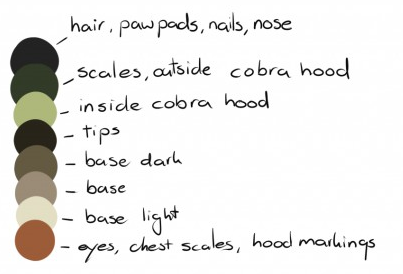 hair, paw pads, nails, nose
scales, outside cobra hood
inside cobra hood
tips
base dark
base
base light
eyes, chest scales, hood markings